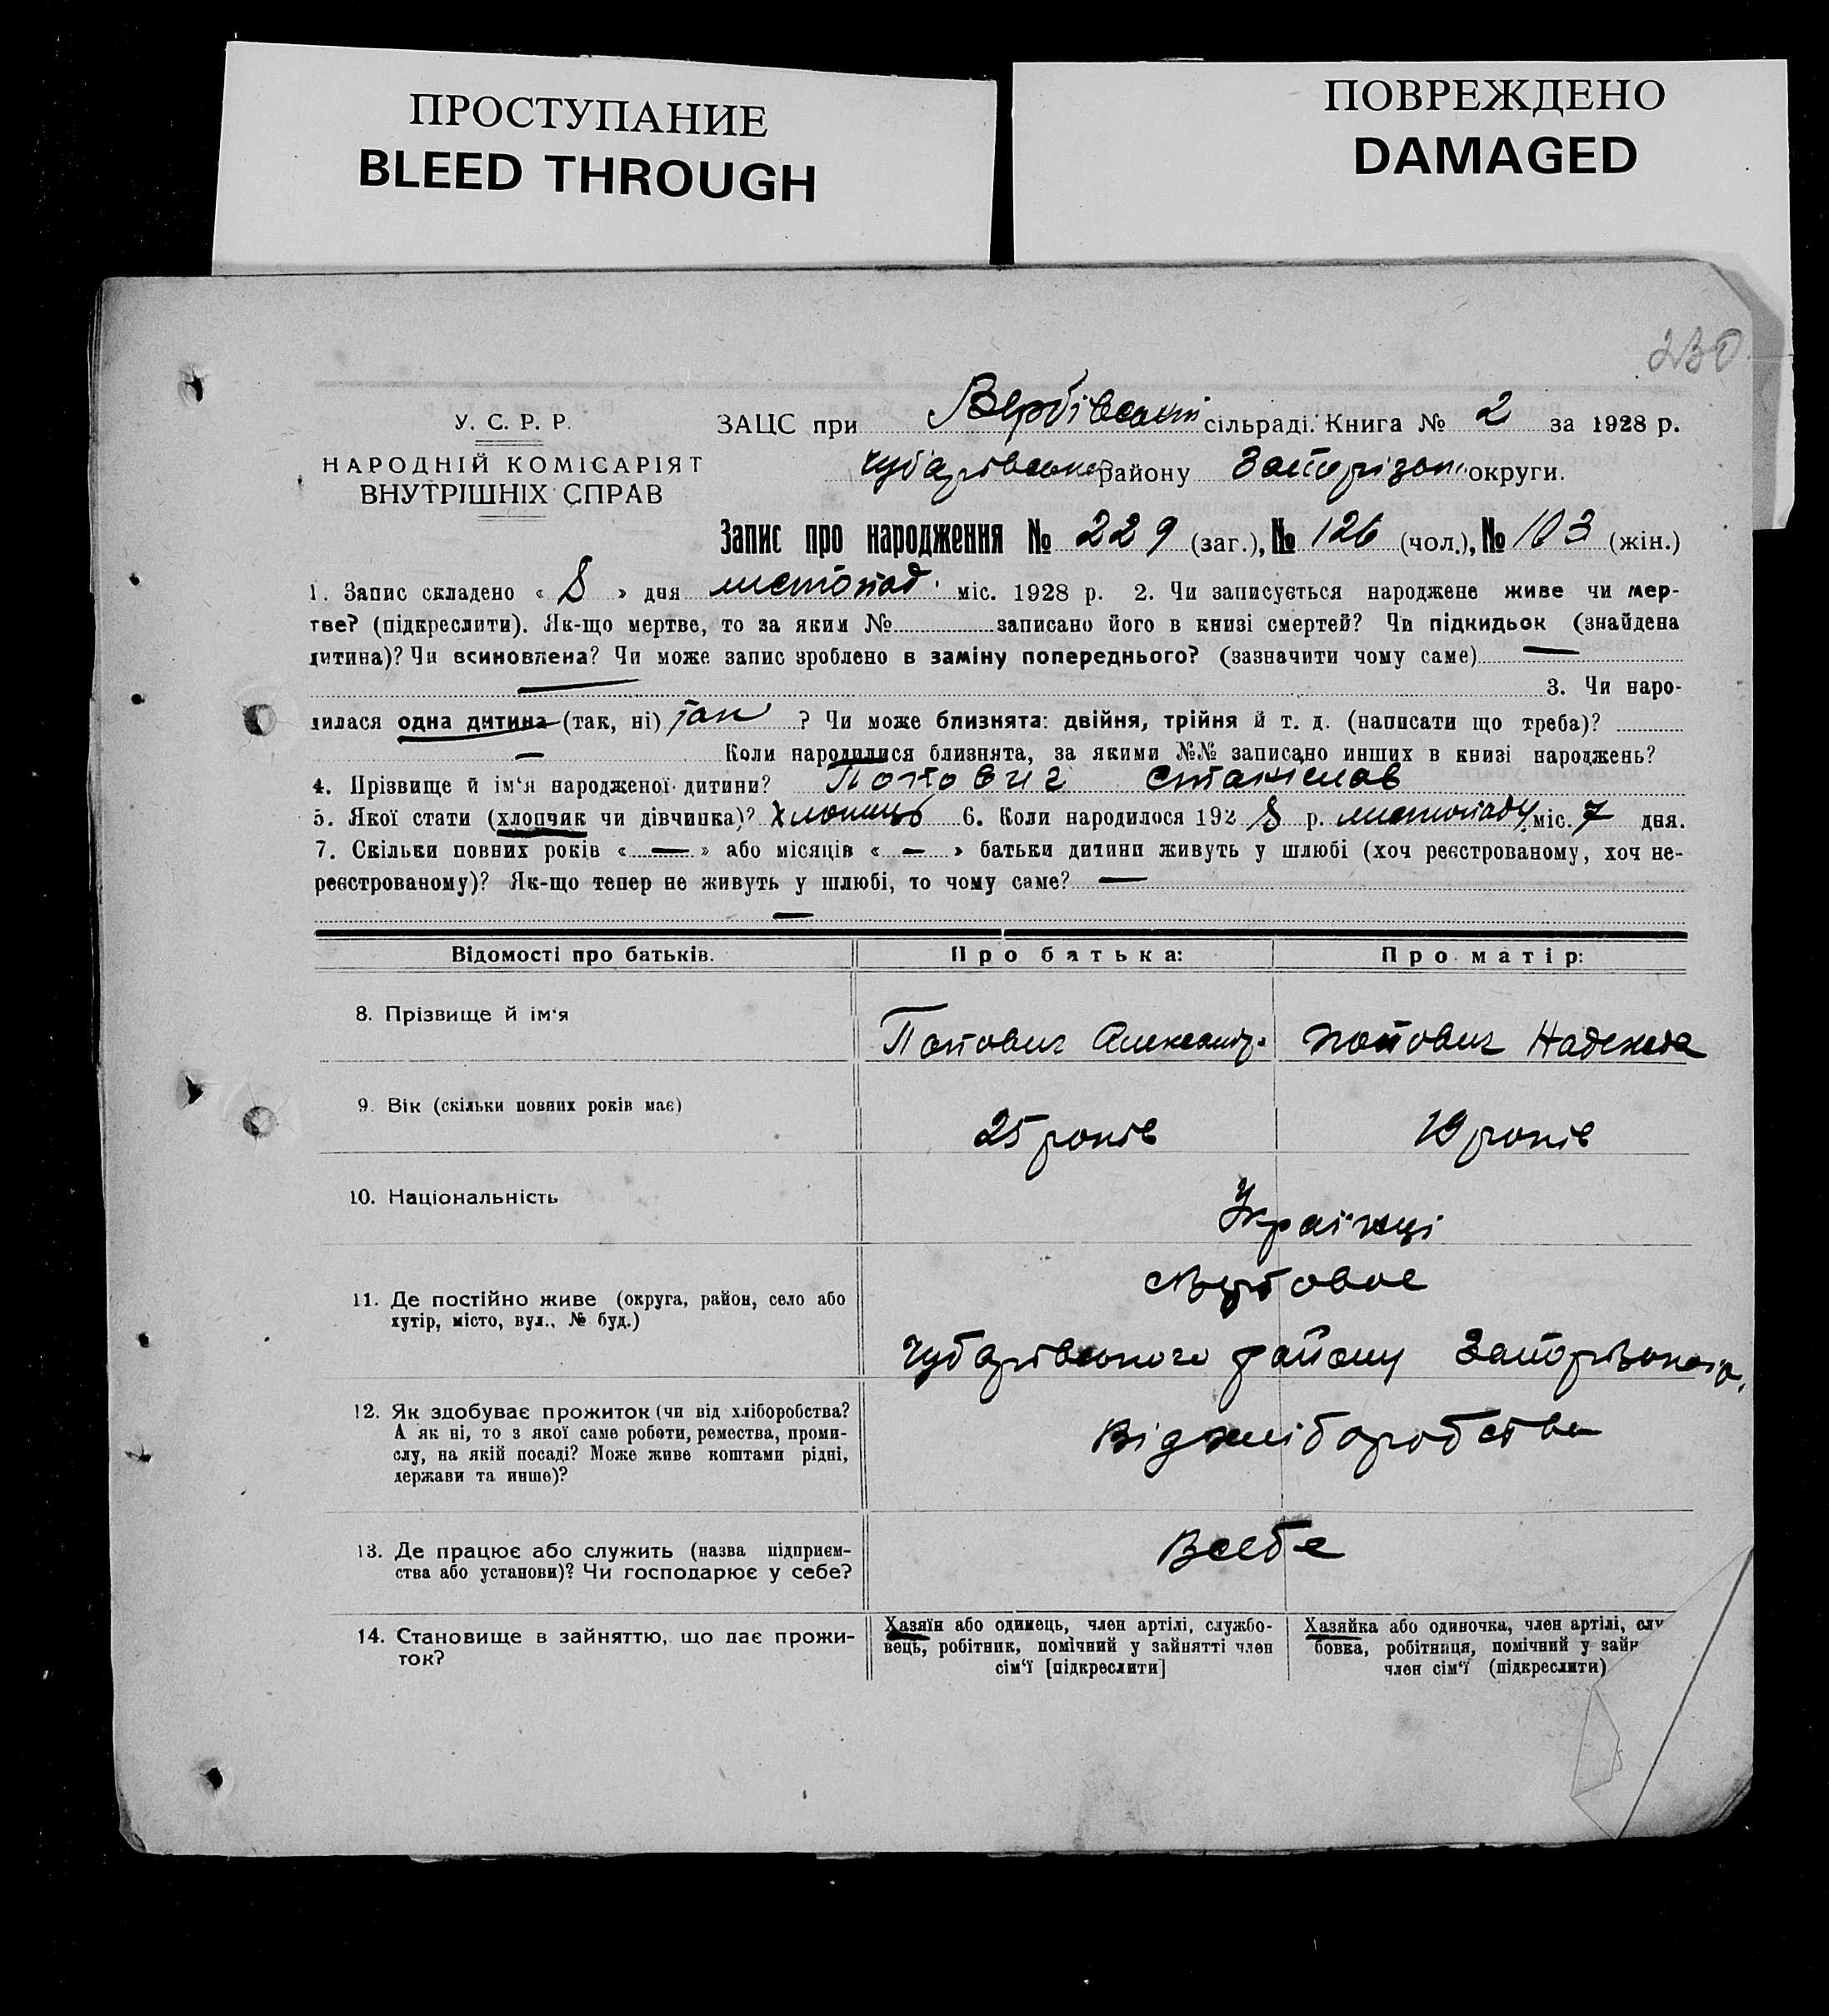 ПРОСТУПАНИЕ
BLEED THROUGH
ПОВРЕЖДЕНО
DAMAGED
230
У. С. Р. Р.
НАРОДНІЙ КОМІСАРІЯТ
ВНУТРІШНІХ СПРАВ
ЗАЦС при Вербівській сільраді. Книга № 2 за 1928 р.
Чубарівськ. району Запорізьк. округи.
Запис про народження № 229 (заг.), № 126 (чол.), № 103 (жін.)
1. Запис складено « 8 » дня листопад. міс. 1928 р. 2. Чи записується народжене живе чи мер-
тве? (підкреслити). Як-що мертве, то за яким № записано його в книзі смертей? Чи підкидьок (знайдена
дитина)? Чи всиновлена? Чи може запис зроблено в заміну попереднього? (зазначити чому саме) —
— 3. Чи наро-
дилася одна дитина (так, ні) так ? Чи може близнята: двійня, трійня й т. д. (написати що треба)?
— Коли народилися близнята, за якими №№ записано инших в книзі народжень?
4. Прізвище й ім‘я народженої дитини? Попович Станіслав
5. Якої стати (хлопчик чи дівчинка)? Хлопець 6. Коли народилося 192 8 р. листопаду міс. 7 дня.
7. Скільки повних років « — » або місяців « — » батьки дитини живуть у шлюбі (хоч реєстрованому, хоч не-
реєстрованому)? Як-що тепер не живуть у шлюбі, то чому саме? —
—
Відомості про батьків. Про батька: Про матір:
8. Прізвище й ім‘я Попович Александр. Попович Надежда
9. Вік (скільки повних років має) 25 років 19 років
10. Національність Українці
11. Де постійно живе (округа, район, село або
хутір, місто, вул., № буд.)
с Вербовое
Чубарівського району Запорізької
12. Як здобуває прожиток (чи від хліборобства?
А як ні, то з якої саме роботи, ремества, проми-
слу, на якій посаді? Може живе коштами рідні,
держави та инше)?
Від хліборобства
13. Де працює або служить (назва підприєм-
ства або установи)? Чи господарює у себе?
В себе
14. Становище в зайняттю, що дає прожи-
ток?
Хазяїн або одинець, член артілі, службо-
вець, робітник, помічний у зайнятті член
сім‘ї [підкреслити]
Хазяйка або одиночка, член артілі, слу
бовка, робітниця, помічний у зайн
член сім‘ї (підкреслити)